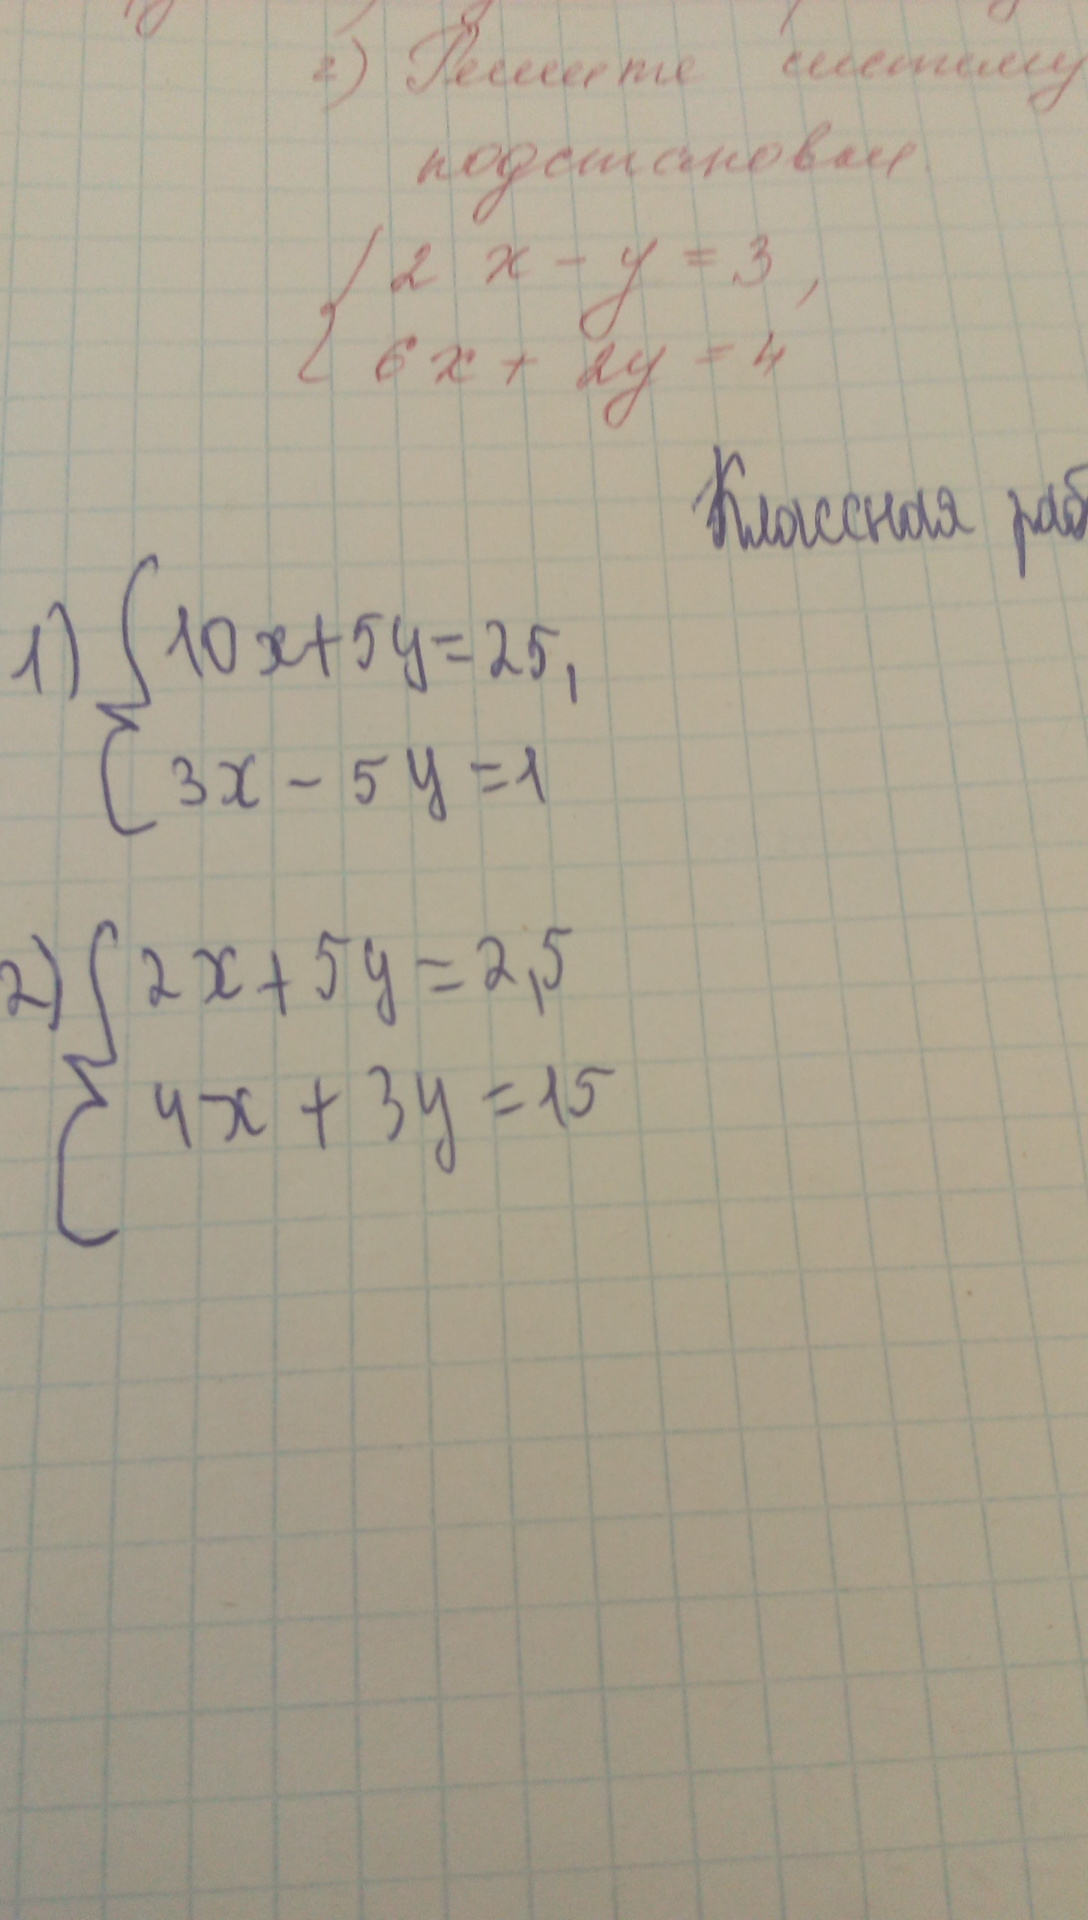 г) Решите систему
подстановки.
{ 2 x - y = 3,
6x + 2y = 4
Классная раб
1) { 10x+5y=25,
3x - 5y = 1
2) { 2x+5y=2,5
4x + 3y = 15